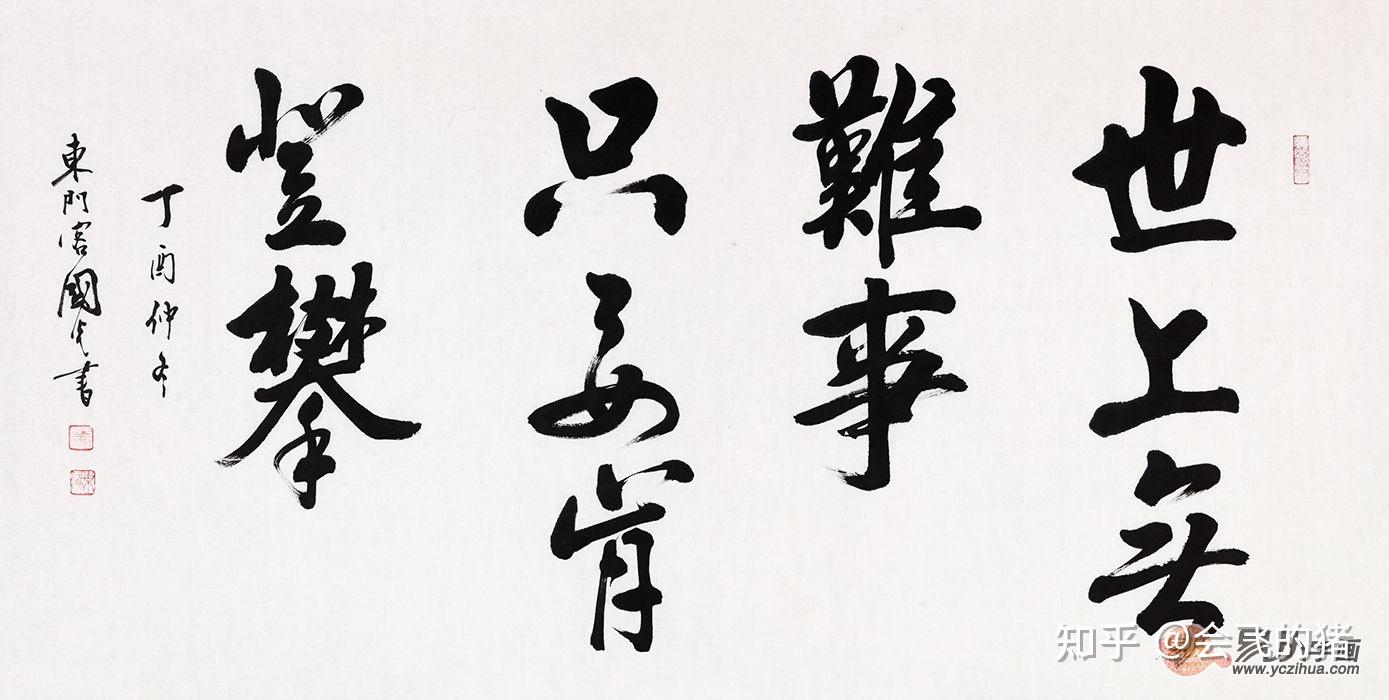 世上無
難事
只要肯
登攀
丁酉仲冬
東門客國光書
知乎 @会飞的猪
易从字画
www.yczihua.com